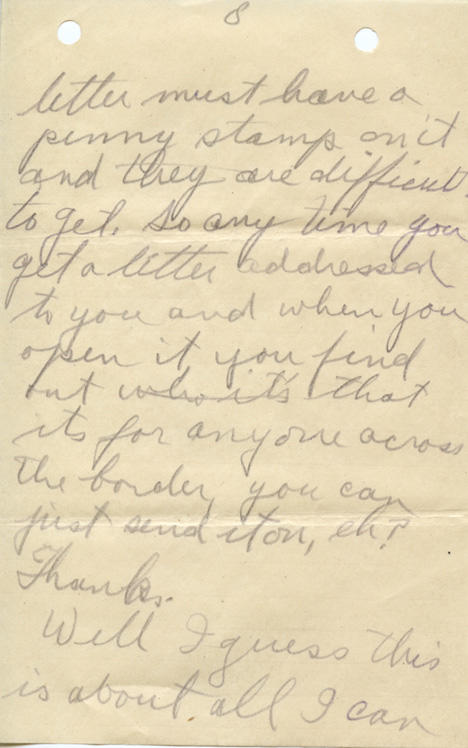 8
letter must have a
penny stamp on it
and they are difficult
to get. So any time you
get a letter addressed
to you and when you
open it you find
out who it's that
its for anyone across
the border, you can
just send it on, eh?
Thanks.
Well I guess this
is about all I can